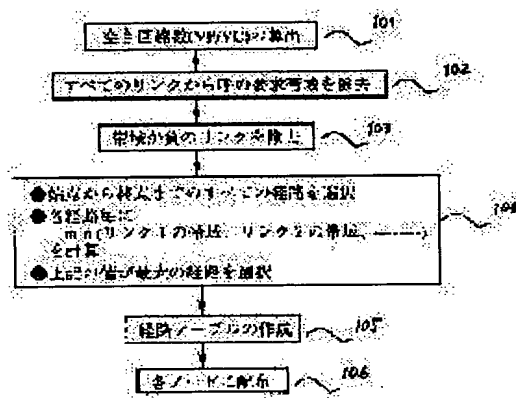 101
すべてのリンクから呼の要求帯域を除去
102
帯域が負のリンクを除去
103
●始点から終点までのすべての経路を選択
●各経路毎に
min(リンク1の帯域、リンク2の帯域、
を計算
●上記の値が最大の経路を選択
104
経路テーブルの作成
105
各ノードに配布
106